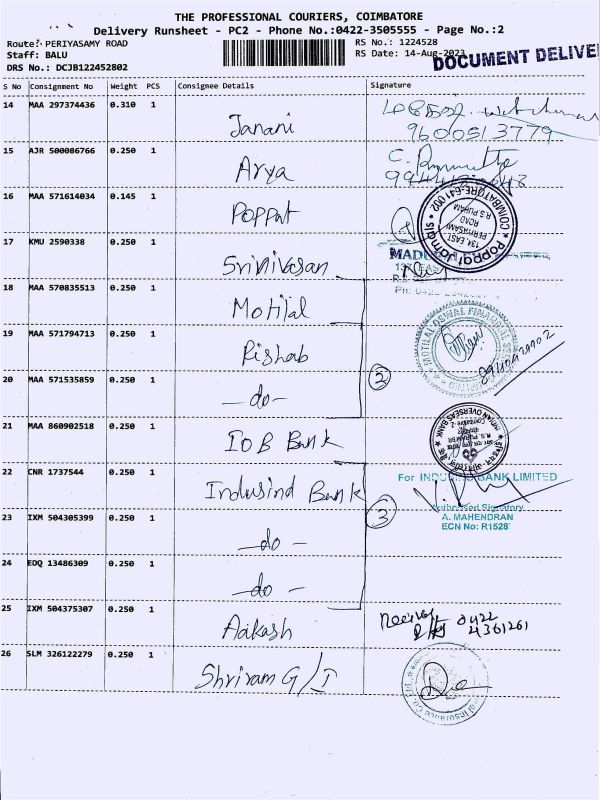 THE PROFESSIONAL COURIERS, COIMBATORE
Delivery Runsheet - PC2 - Phone No.:0422-3505555 - Page No.:2
Route: PERIYASAMY ROAD RS No.: 1224528
Staff: BALU RS Date: 14-Aug-2023
DRS No.: DCJB122452802
DOCUMENT DELIVE
S No Consignment No Weight PCS Consignee Details Signature
14 MAA 297374436 0.310 1
Janani
9600513779
15 AJR 500086766 0.250 1
Arya
16 MAA 571614034 0.145 1
Poppat
COIMBATORE-641 002
134, EAST PERIYASAMI ROAD R.S. PURAM
Poppat Jamal
17 KMU 2590338 0.250 1
Srinivasan
18 MAA 570835513 0.250 1
Motilal
19 MAA 571794713 0.250 1
Rishab
MOTILAL OSWAL FINANCIAL
20 MAA 571535859 0.250 1
-do-
2
21 MAA 860902518 0.250 1
IOB Bank
INDIAN OVERSEAS BANK
22 CNR 1737544 0.250 1
Indusind Bank
For INDUSIND BANK LIMITED
Authorised Signatory
A. MAHENDRAN
ECN No: R1528
3
23 IXM 504305399 0.250 1
-do-
24 EDQ 13486309 0.250 1
-do-
25 IXM 504375307 0.250 1
Aakash
0422
4361261
26 SLM 326122279 0.250 1
Shriram G/I